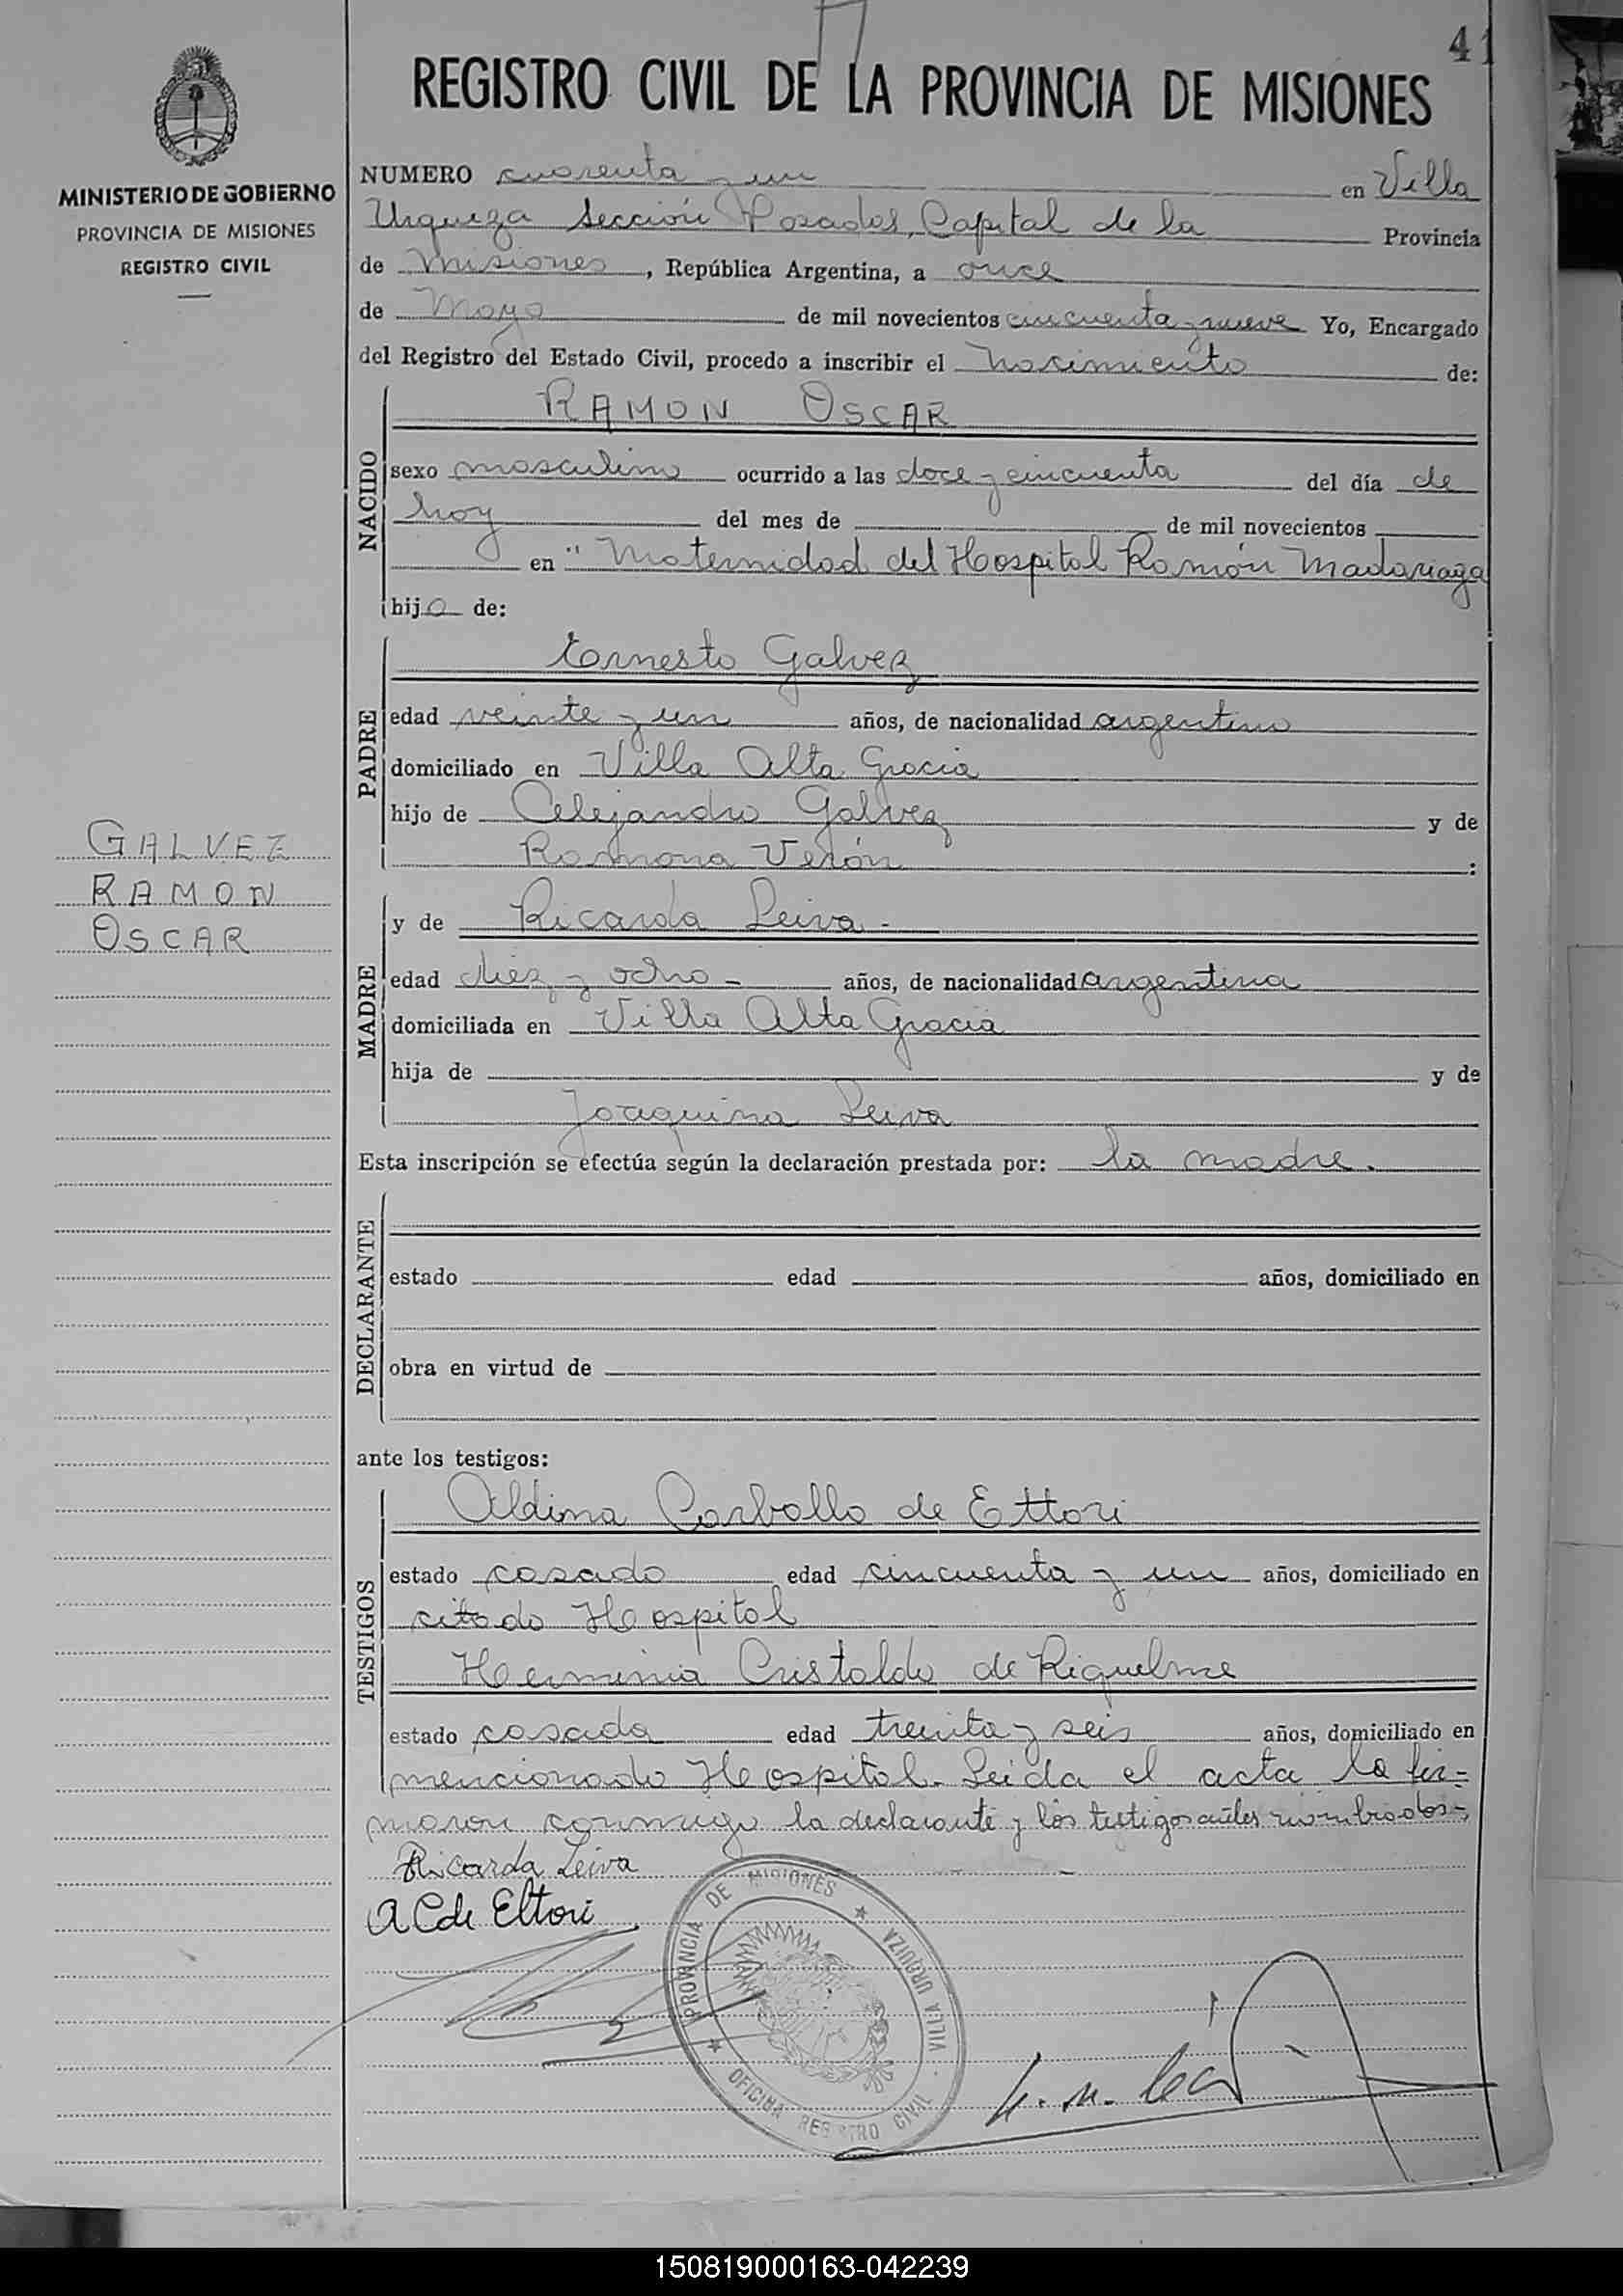 41
REGISTRO CIVIL DE LA PROVINCIA DE MISIONES
MINISTERIO DE GOBIERNO
PROVINCIA DE MISIONES
REGISTRO CIVIL
NUMERO cuarenta y un en Villa
Urquiza Sección Posadas, Capital de la Provincia
de Misiones, República Argentina, a once
de Mayo de mil novecientos cincuenta y nueve Yo, Encargado
del Registro del Estado Civil, procedo a inscribir el nacimiento de:
RAMON OSCAR
NACIDO
sexo masculino ocurrido a las doce y cincuenta del día de
hoy del mes de de mil novecientos
en "Maternidad del Hospital Ramón Madariaga
hijo de:
Ernesto Galvez
PADRE
edad veinte y un años, de nacionalidad argentino
domiciliado en Villa Alta Gracia
hijo de Alejandro Galvez y de
Ramona Verón :
GALVEZ
RAMON
OSCAR
y de Ricarda Leiva -
MADRE
edad diez y ocho - años, de nacionalidad argentina
domiciliada en Villa Alta Gracia
hija de y de
Joaquina Leiva
Esta inscripción se efectúa según la declaración prestada por: la madre.
DECLARANTE
estado edad años, domiciliado en
obra en virtud de
ante los testigos:
Aldina Carballo de Ettori
TESTIGOS
estado casado edad cincuenta y un años, domiciliado en
citado Hospital
Herminia Cristaldo de Riquelme
estado casada edad treinta y seis años, domiciliado en
mencionado Hospital. Leida el acta la fir=
maron conmigo la declarante y los testigos antes nombrados-
Ricarda Leiva
A C de Ettori
PROVINCIA DE MISIONES ★ VILLA URQUIZA
★ OFICINA REGISTRO CIVIL
150819000163-042239